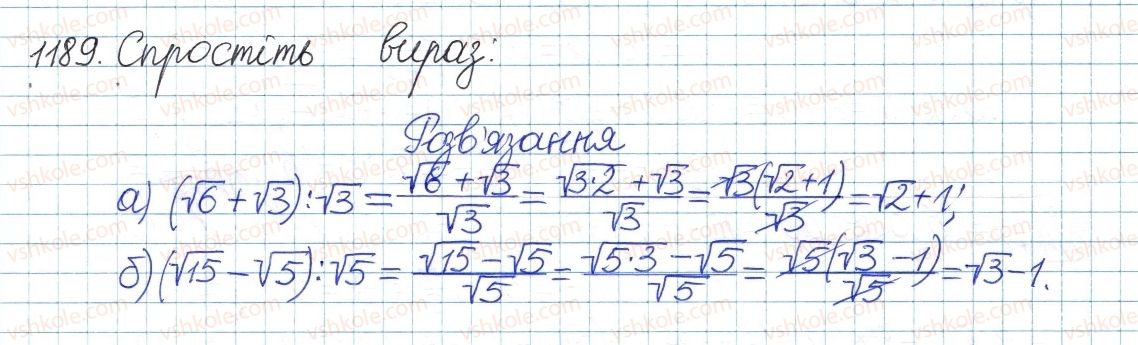 1189. Спростіть вираз:
Розв'язання
а) (√6 + √3) : √3 = (√6 + √3)/√3 = (√(3·2) + √3)/√3 = √3(√2 + 1)/√3 = √2 + 1;
б) (√15 − √5) : √5 = (√15 − √5)/√5 = (√(5·3) − √5)/√5 = √5(√3 − 1)/√5 = √3 − 1.